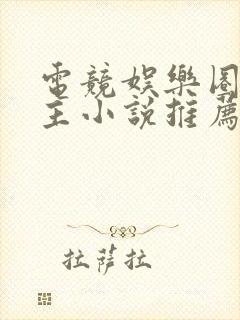 電競娛樂圈
主小說推薦
拉薩拉